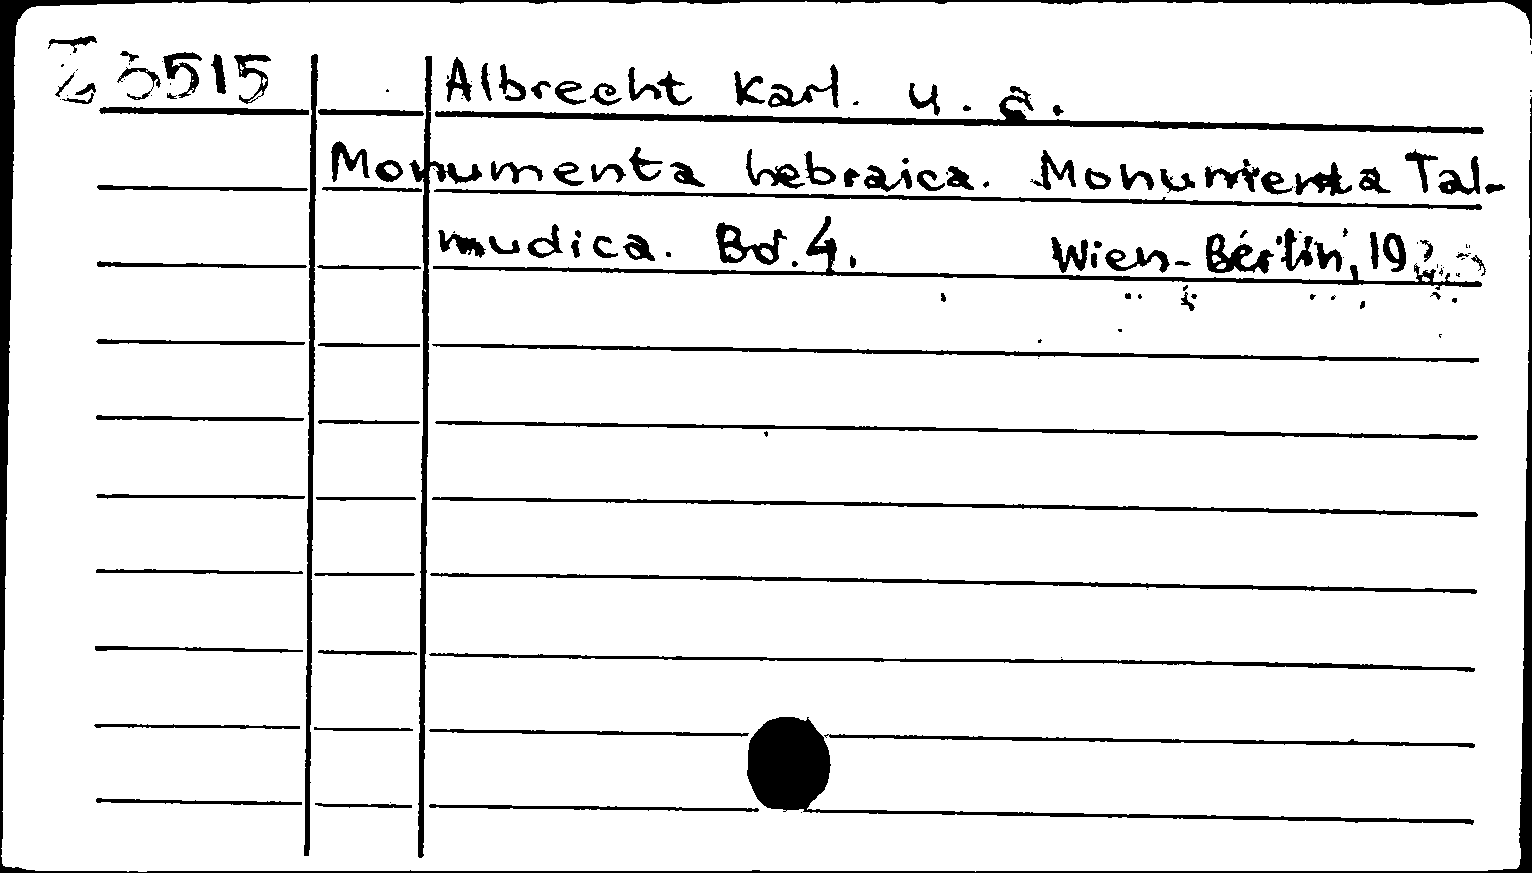 Z 3515 Albrecht Karl. u. a.
Monumenta hebraica. Monumenta Tal-
mudica. Bd. 4. Wien-Berlin,